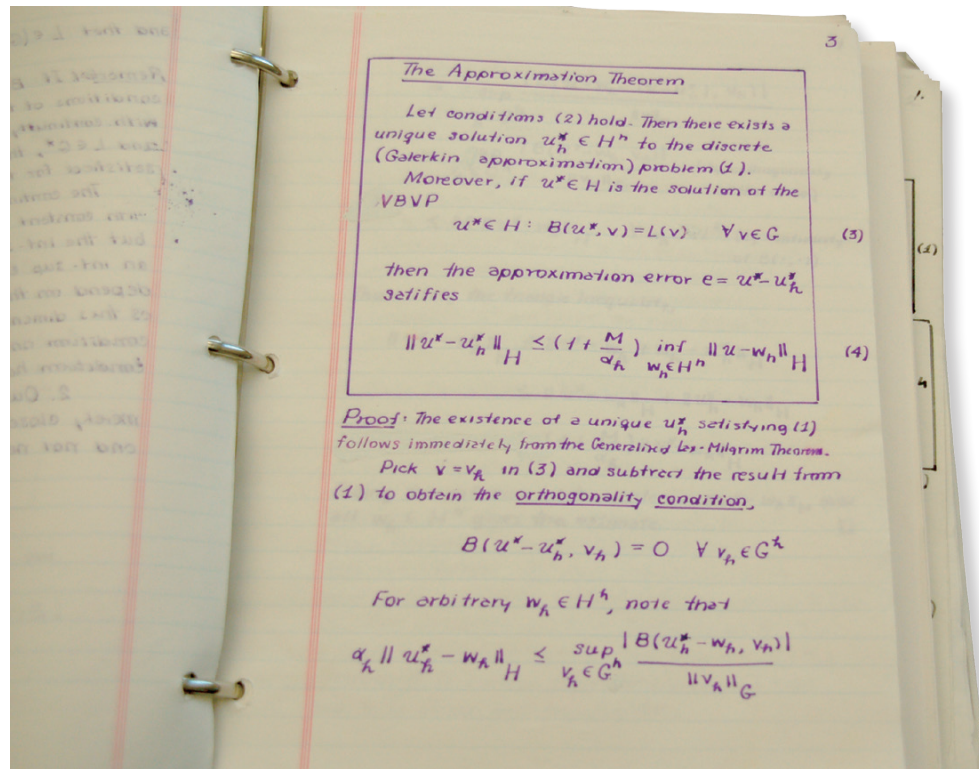 3
The Approximation Theorem
Let conditions (2) hold. Then there exists a
unique solution u*_h ∈ H^h to the discrete
(Galerkin approximation) problem (1).
Moreover, if u* ∈ H is the solution of the
VBVP
u* ∈ H : B(u*, v) = L(v) ∀ v ∈ G (3)
then the approximation error e = u* - u*_h
satifies
||u* - u*_h||_H ≤ (1 + M/α_h) inf_{w_h ∈ H^h} ||u - w_h||_H (4)
Proof: The existence of a unique u*_h satisfying (1)
follows immediately from the Generalized Lax-Milgrim Theorem.
Pick v = v_h in (3) and subtract the result from
(1) to obtain the orthogonality condition,
B(u* - u*_h, v_h) = 0 ∀ v_h ∈ G^h
For arbitrary w_h ∈ H^h, note that
α_h ||u*_h - w_h||_H ≤ sup_{v_h ∈ G^h} |B(u*_h - w_h, v_h)| / ||v_h||_G
(1)